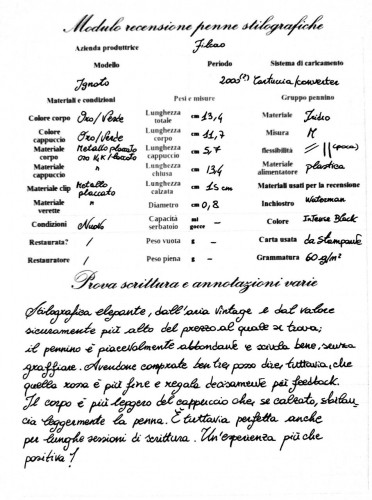 Modulo recensione penne stilografiche
Azienda produttrice Filcao
Modello Periodo Sistema di caricamento
Ignoto 2000(?) Cartuccia/converter
Materiali e condizioni Pesi e misure Gruppo pennino
Colore corpo Oro/Verde Lunghezza totale cm 13,4 Materiale Iridio
Colore cappuccio Oro/Verde Lunghezza corpo cm 11,7 Misura M
Materiale corpo Metallo placcato oro K,K/laccato Lunghezza cappuccio cm 5,7 flessibilità = || (poca)
Materiale cappuccio " Lunghezza chiusa cm 134 Materiale alimentatore plastica
Materiale clip Metallo placcato Lunghezza calzata cm 15 cm Materiali usati per la recensione
Materiale verette " Diametro cm 0,8 Inchiostro Waterman
Condizioni Nuova Capacità serbatoio ml gocce - Colore Intense Black
Restaurata? / Peso vuota g - Carta usata da stampante
Restauratore / Peso piena g - Grammatura 60 g/m²
Prova scrittura e annotazioni varie
Stilografica elegante, dall'aria vintage e dal valore
sicuramente più alto del prezzo al quale si trova;
il pennino è piacevolmente abbondante e scivola bene, senza
graffiare. Avendone comprate ben tre, posso dire, tuttavia, che
quella rossa è più fine e regala decisamente più feedback.
Il corpo è più leggero del cappuccio che, se calzato, sbilan-
cia leggermente la penna. È tuttavia perfetta anche
per lunghe sessioni di scrittura. Un'esperienza più che
positiva!